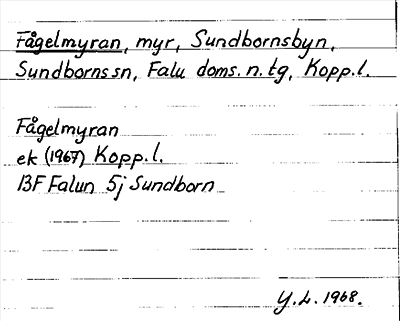 Fågelmyran, myr, Sundbornsbyn,
Sundborns sn, Falu doms. n. tg, Kopp. l.
Fågelmyran
ek (1967) Kopp. l.
13F Falun 5j Sundborn
Y. L. 1968.